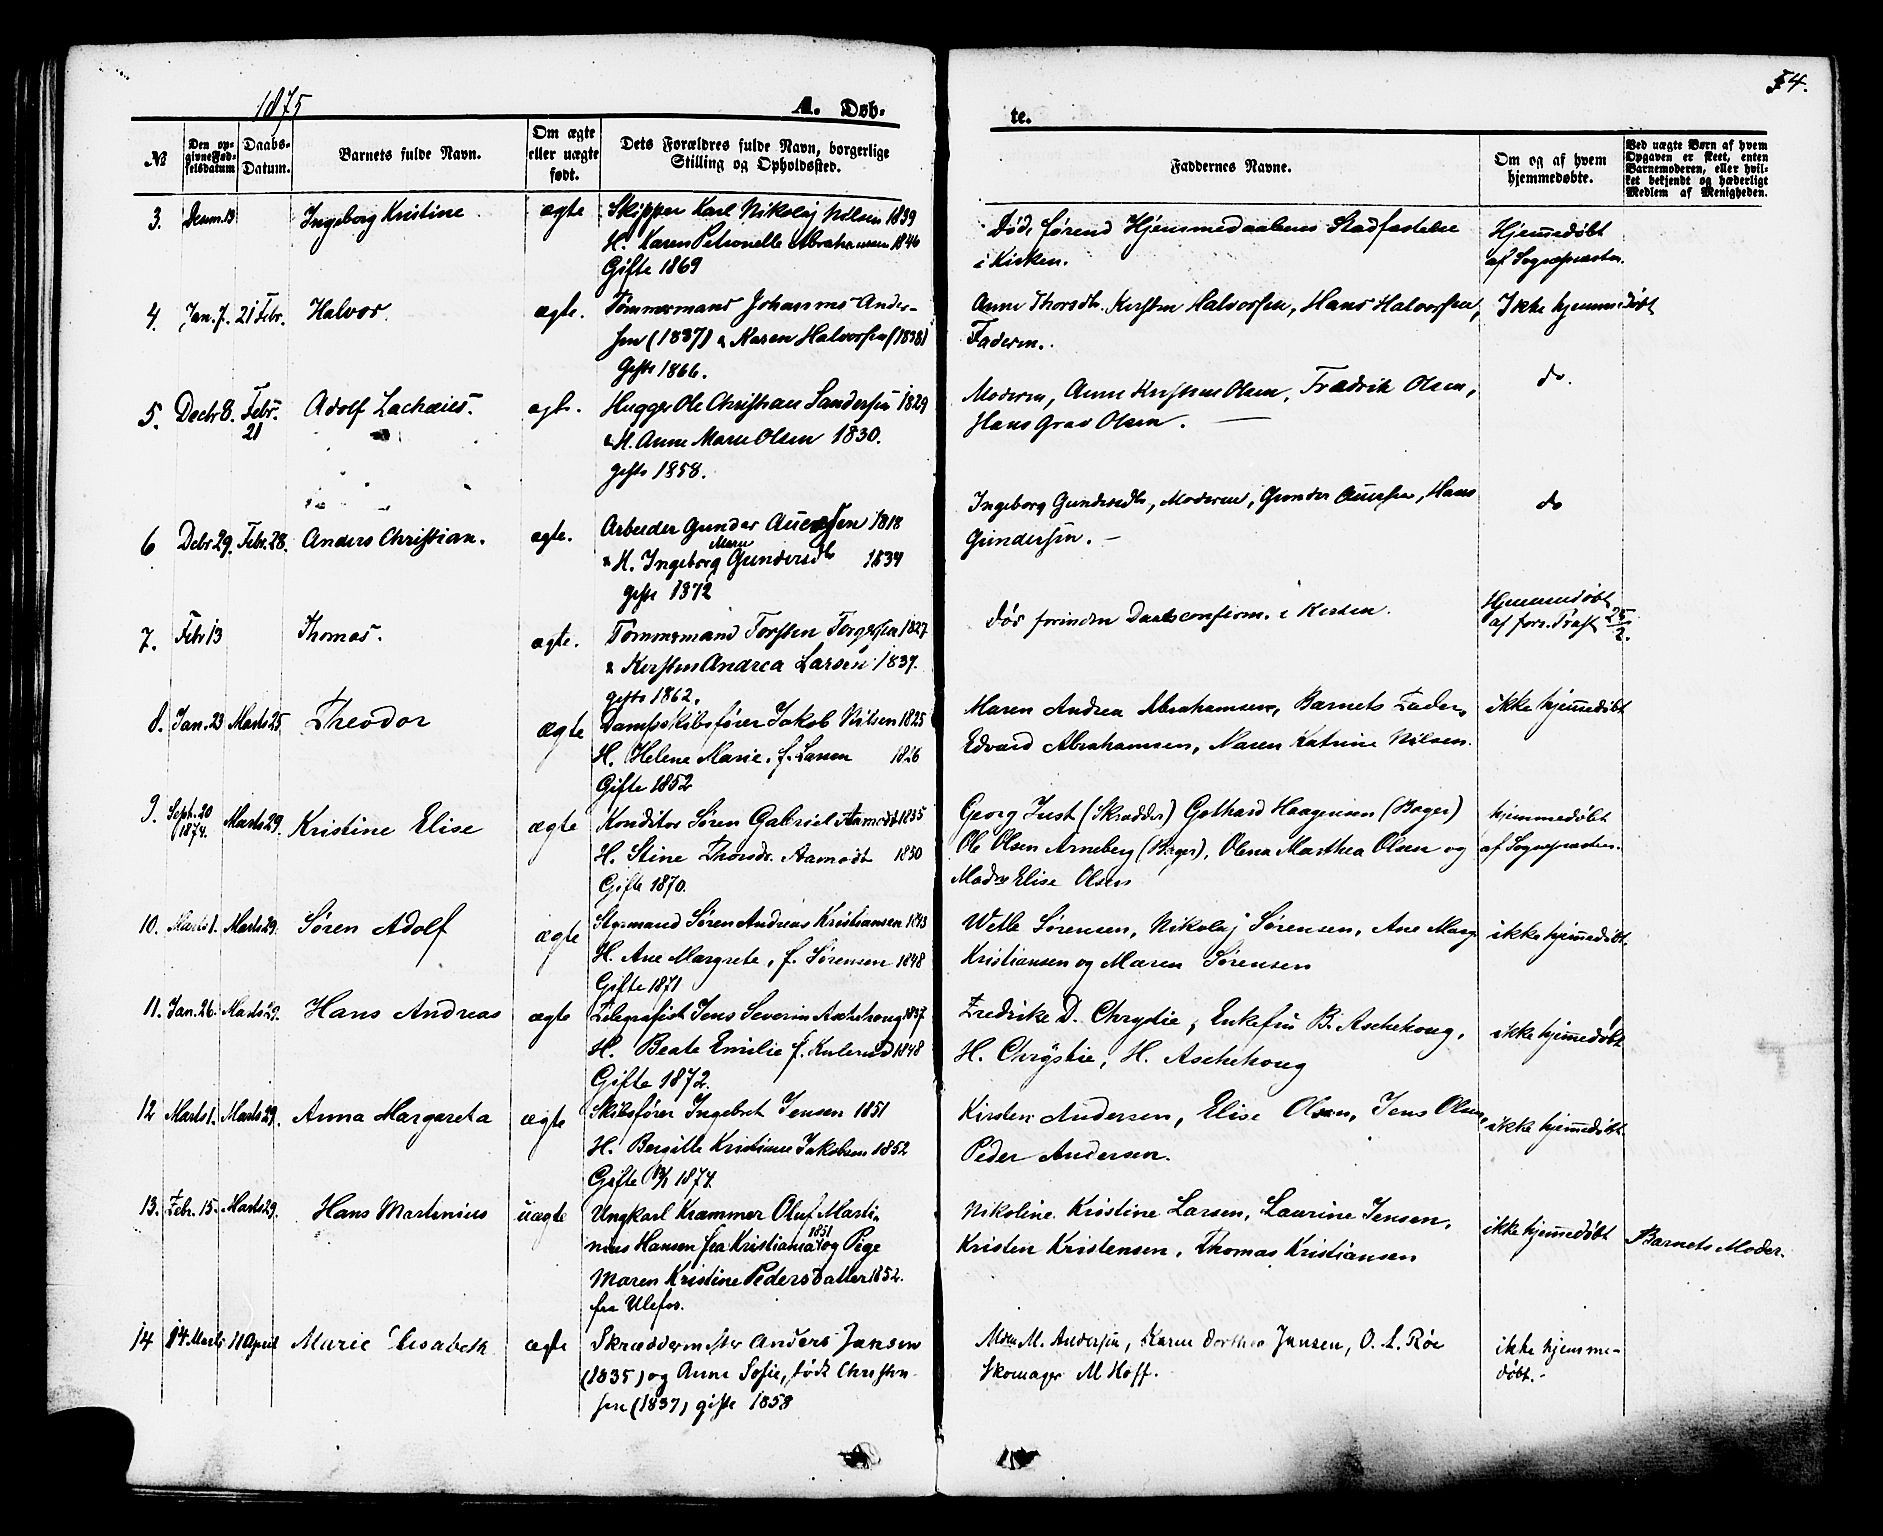 1875
A. Døb-
te.
54.
№
Den op-
givne Fød-
selsdatum
Daabs-
Datum.
Barnets fulde Navn.
Om ægte
eller uægte
født.
Dets Forældres fulde Navn, borgerlige
Stilling og Opholdssted.
Faddernes Navne.
Om og af hvem
hjemmedøbte.
Ved uægte Børn af hvem
Opgaven er skeet, enten
Barnemoderen, eller hvil-
ket bekjendt og hæderligt
Medlem af Menigheden.
3. Ingeborg Kristine ægte Skipper Karl Nikolaj Nilsen 1839
H. Karen Petronelle Abrahamsen 1846
Gifte 1869
Død førend Hjemmedaabens Stadfæstelse
i Kirken.
Hjemmedøbt
af Sognepresten.
4. Jan. 7. 21 Febr. Halvor. ægte. Tømmermand Johannes Ander-
sen (1837) & Karen Halvorsen (1838)
Gifte 1866.
Anne Thorsdtr. Kirsten Halvorsen, Hans Halvorsen,
Faderen.
Ikke hjemmedøbt
5. Decbr 8. Febr.
21
Adolf Zachæus. ægte. Hugger Ole Christian Sandersen 1829
& H. Anne Marie Olsen 1830.
gifte 1858.
Moderen, Anne Kirstine Olsen, Fredrik Olsen,
Hans Olsen.
do.
6 Debr. 29. Febr. 28. Anders Christian. ægte. Arbeider Gunder 1818
Marie
& H. Ingeborg Gundersdtr 1834
gifte 1872
Ingeborg Gundersdtr, Moderen, Gunder Hans
Gundersen. –
do
7. Febr 13 Thomas. ægte. Tømmermand Torsten Torgersen 1827
& Kirsten Andrea Larsen 1837.
gifte 1862.
Død forinden Daabsconfirm. i Kirken.
Hjemmedøbt
25/2.
8. Jan. 23 Marts 25. Theodor ægte Dampskibsfører Jakob Nilsen 1825
H. Helene Marie, f. Larsen 1826
Gifte 1852
Maren Andrea Abrahamsen, Barnets Fader,
Edvard Abrahamsen, Maren Katrine Nilsen.
ikke hjemmedøbt
9. Sept. 20
1874.
Marts 29. Kristine Elise ægte Konditor Søren Gabriel Aamodt 1835
H. Stine Thorsdr. Aamodt 1850
Gifte 1870.
Georg Just (Skrædder) Gothard Haagensen (Bager)
Ole Olsen Arneberg (Bager), Olena Marthea Olsen og
Elise Olsen
hjemmedøbt
af Sognepresten.
10. Marts 1. Marts 29. Søren Adolf ægte Styrmand Søren Andreas Kristiansen 1843
H. Ane Margrete, f. Sørensen 1848
Gifte 1871
Wetle Sørensen, Nikolaj Sørensen, Ane Marg.
Kristiansen og Maren Sørensen
ikke hjemmedøbt.
11. Jan. 26. Marts 29. Hans Andreas ægte Telegrafist Jens Severin Aschehoug 1837
H. Beate Emilie f. 1848
Gifte 1872.
Fredrike D. Chrystie, Enkefru B. Aschehoug,
H. Chrystie, H. Aschehoug
ikke hjemmedøbt
12 Marts 1. Marts 29. Anna Margareta ægte Skibsfører Ingebret Jensen 1851
H. Bergitte Kristiane Jakobsen 1852
Gifte 1874.
Kirsten Andersen, Elise Olsen, Jens Olsen,
Peder Andersen.
ikke hjemmedøbt.
13. Febr. 15. Marts 29. Hans Martinius uægte Ungkarl Kræmmer Oluf Marti-
nius Hansen fra Kristiania 1851 og Pige
Maren Kristine Pedersdatter 1852.
fra Ulefos.
Nikoline Kristine Larsen, Laurine Jensen,
Kristen Kristensen, Thomas Kristiansen
ikke hjemmedøbt
Barnets Moder.
14 14. Marts 11 April Marie Elisabeth ægte Skræddermester Anders Jansen
(1835) og Anne Sofie, født Christen-
sen (1837) gifte 1858
M. Andersen, Karen Dorthea Jansen, O. L. Røe
Skomager M Hoff.
ikke hjemme-
døbt. –